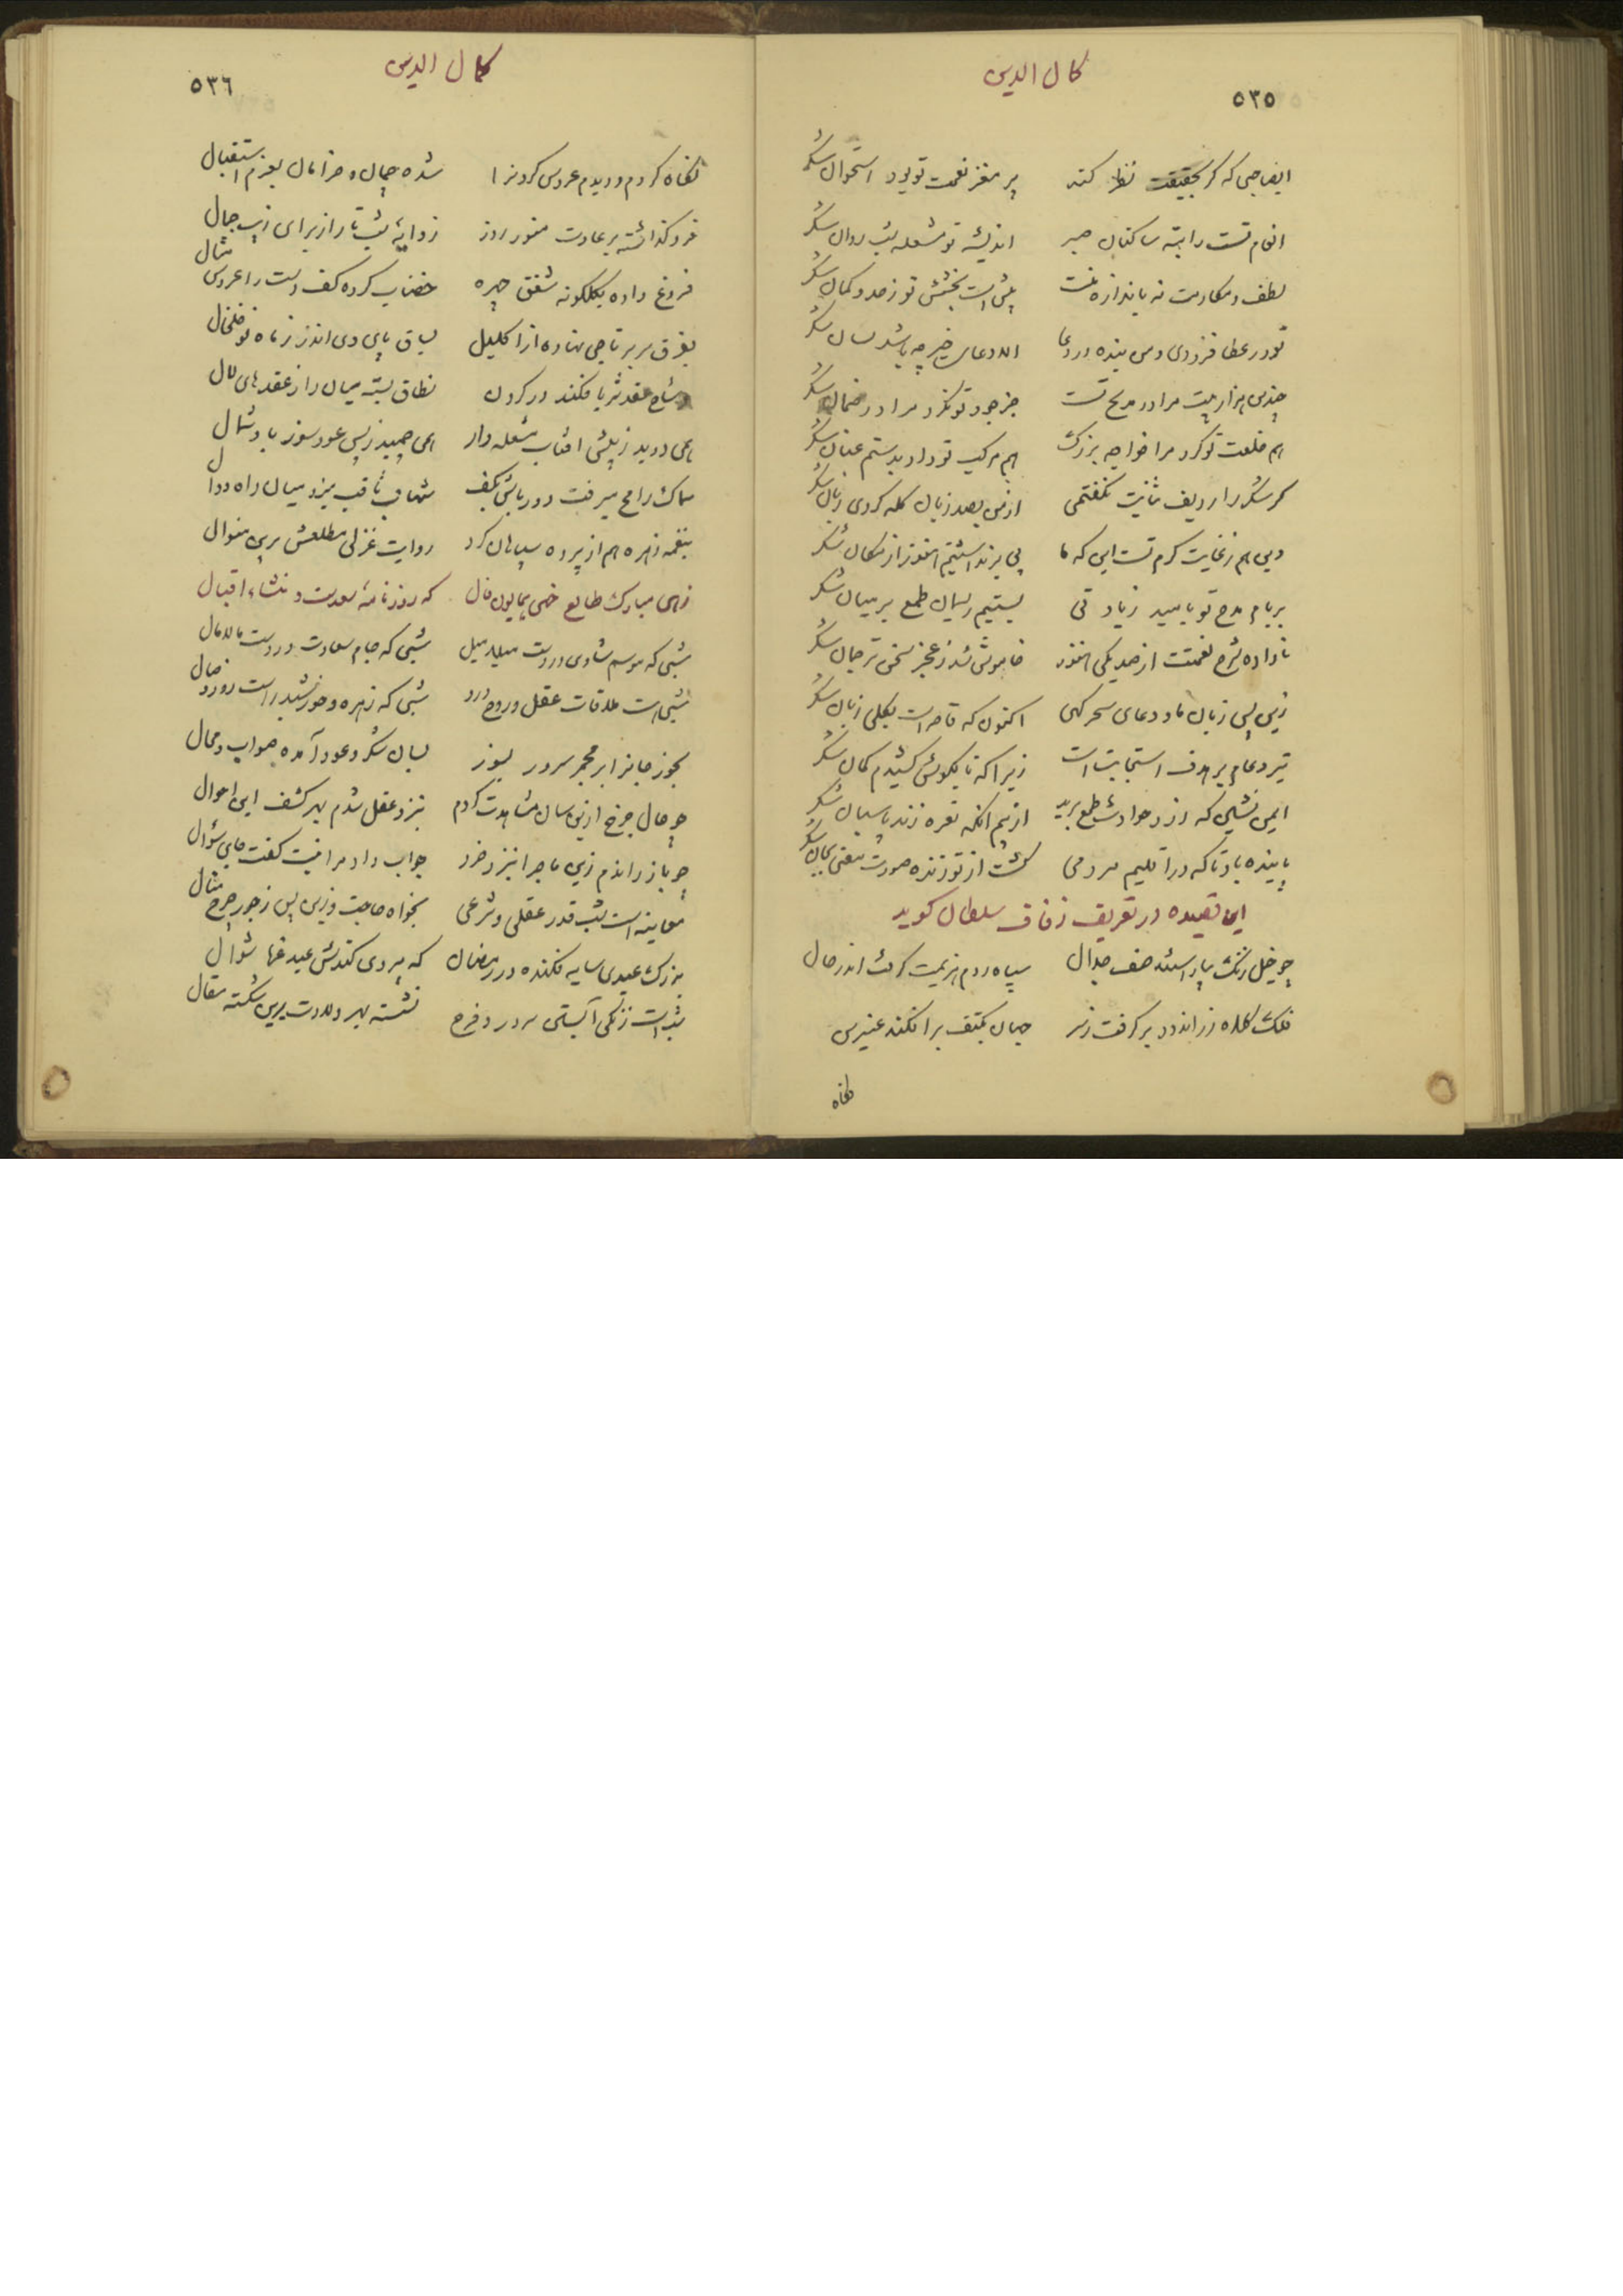 کمال الدین
٥٣٥
انصاحبی که گر بحقیقت نظر کند پر مغز نعمت تو بود استخوان شکر
انعام تست راتبه ساکنان صبر اندیشه تو مشعله شب روان شکر
لطف و مکارمت نه باندازه منست بیش است بخشش تو ز حد و کمان شکر
تو در عطا فزودی و من بنده در دعا الا دعای خیر چه باشد لسان شکر
چندین هزار بیت مرا در مدیح تست جز جود تو نکرد مرا در ضمان شکر
هم خلعت تو کرد مرا خواجه بزرگ هم مرکب تو داد بدستم عنان شکر
گر شکر را ردیف ثنایت نگفتمی از من بصد زبان گله کردی زبان شکر
وین هم ز غایت کرم تست این که ما پی برنداشتیم هنوز از مکان شکر
بر بام مدح تو بامید زیادتی بستیم ریسمان طمع بر میان شکر
ناداده شرح نعمتت از صد یکی هنوز خاموش شد ز عجز سخن ترجمان شکر
زین پس زبان ما و دعای سحرگهی اکنون که قاصر است بکلی زبان شکر
تیر دعام بر هدف استجابت است زیرا که تا بگوش کشیدم کمان شکر
ایمن نشین که دزد حوادث طمع برید از بیم آنکه نعره زند پاسبان شکر
پاینده باد تا که در اقلیم مردمی گشت از تو زنده صورت معنی بجان شکر
این قصیده در تعریف زفاف سلطان کوید
چو خیل زنک بیاراستند صف جدال سپاه روم هزیمت گرفت اندر حال
فلک کلاه زراندود بر گرفت ز سر جهان بکتف برافکند عنبرین
نکاه
کمال الدین
٥٣٦
نکاه کردم و دیدم عروس گردونرا شده چمان و خرامان بعزم استقبال
فرو گذاشته بر عادت منور روز ذوابهٔ شب تار از برای زیب جمال
فروغ داده بگلگونه شفق چهره خضاب کرده کف دست را عروس مثال
بفرق سر بر تاجی نهاده از اکلیل بساق پای وی اندر ز ماه نو خلخال
وشاح عقد ثریا فکنده در گردن نطاق بسته میان را ز عقدهای لآل
همی دوید ز پیش آفتاب مشعله‌دار همی چمید ز پس عودسوز باد شمال
سماک رامح میرفت دورباش بکف شهاب ثاقب میزد میان راه دوال
بنغمه زهره هم از پرده سپاهان کرد روایت غزلی مطلعش برین منوال
زهی مبارک طالع خهی همایون فال که روزنامهٔ سعدست و منشاء اقبال
شبی که موسم شادی دروست میلامیل شبی که جام سعادت دروست مالامال
شبی است ملاقات عقل و روح درو شبی که زهره و خورشید راست روز وصال
بخور جانرا بر مجمر سرور بسوز بسان شکر و عود آمده صواب و محال
چو حال چرخ ازین سان مشاهدت کردم بنزد عقل شدم بهر کشف این احوال
چو باز راندم زین ماجرا بنزد خرد جواب داد مرا نیست گفت جای سؤال
معاینه است شب قدر عقلی و شرعی بخواه حاجت و زین پس ز جور چرخ منال
بزرگ عیدی سایه فکنده در رمضان که پیروی کندش عید غرهٔ شوال
شب است زنگی آبستن سرور و فرح نشسته بهر ولادت برین شکسته سفال